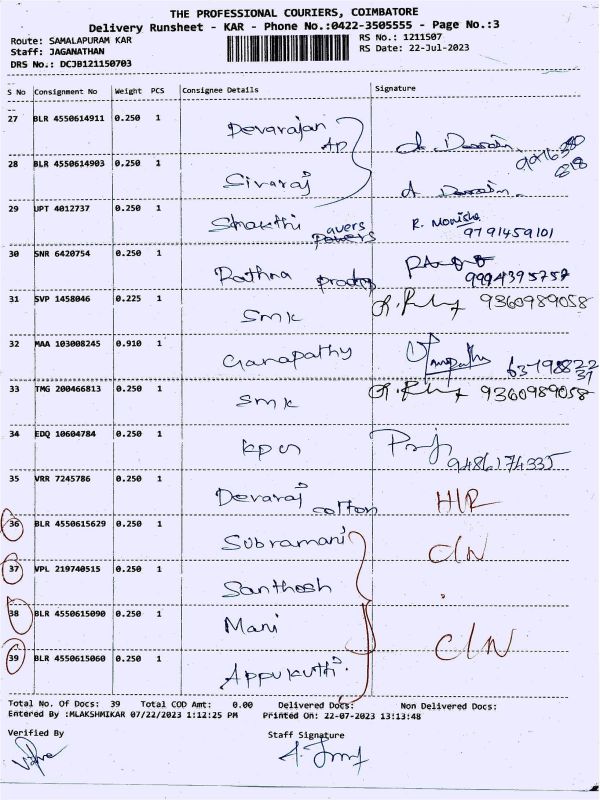 THE PROFESSIONAL COURIERS, COIMBATORE
Delivery Runsheet - KAR - Phone No.:0422-3505555 - Page No.:3
Route: SAMALAPURAM KAR RS No.: 1211507
Staff: JAGANATHAN RS Date: 22-Jul-2023
DRS No.: DCJB121150703
S No Consignment No Weight PCS Consignee Details Signature
27 BLR 4550614911 0.250 1 Devarajan AP
28 BLR 4550614903 0.250 1 Sivaraj
29 UPT 4012737 0.250 1 Shakthi avers R. Monisha 9791459101
30 SNR 6420754 0.250 1 Rathna 9994395757
31 SVP 1458046 0.225 1 smk 9360989058
32 MAA 103008245 0.910 1 Ganapathy
33 TMG 200466813 0.250 1 smk 9360989058
34 EDQ 10604784 0.250 1 9486174335
35 VRR 7245786 0.250 1 Devaraj cotton H/R
36 BLR 4550615629 0.250 1 Subramani C/N
37 VPL 219740515 0.250 1 Santhosh
38 BLR 4550615090 0.250 1 Mani C/N
39 BLR 4550615060 0.250 1 Appukutti
Total No. Of Docs: 39 Total COD Amt: 0.00 Delivered Docs: Non Delivered Docs:
Entered By :MLAKSHMIKAR 07/22/2023 1:12:25 PM Printed On: 22-07-2023 13:13:48
Verified By Staff Signature